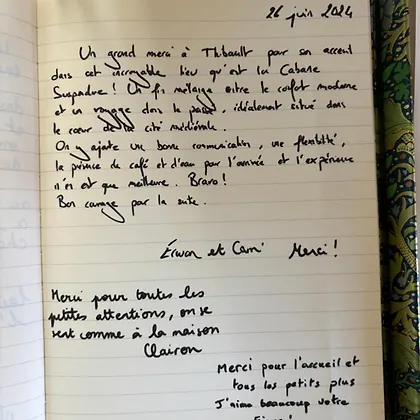 26 juin 2024
Un grand merci à Thibault pour son accueil
dans cet incroyable lieu qu'est la Cabane
Suspendue ! Un fin mélange entre le confort moderne
et un voyage dans le passé, idéalement situé dans
le cœur de la cité médiévale.
On y ajoute une bonne communication, une flexibilité,
la présence de café et d'eau pour l'arrivée et l'expérience
n'en est que meilleure. Bravo !
Bon courage pour la suite.
Erwan et Cami Merci !
Merci pour toutes les
petites attentions, on se
sent comme à la maison
Clairon
Merci pour l'accueil et
tous les petits plus
J'aime beaucoup votre